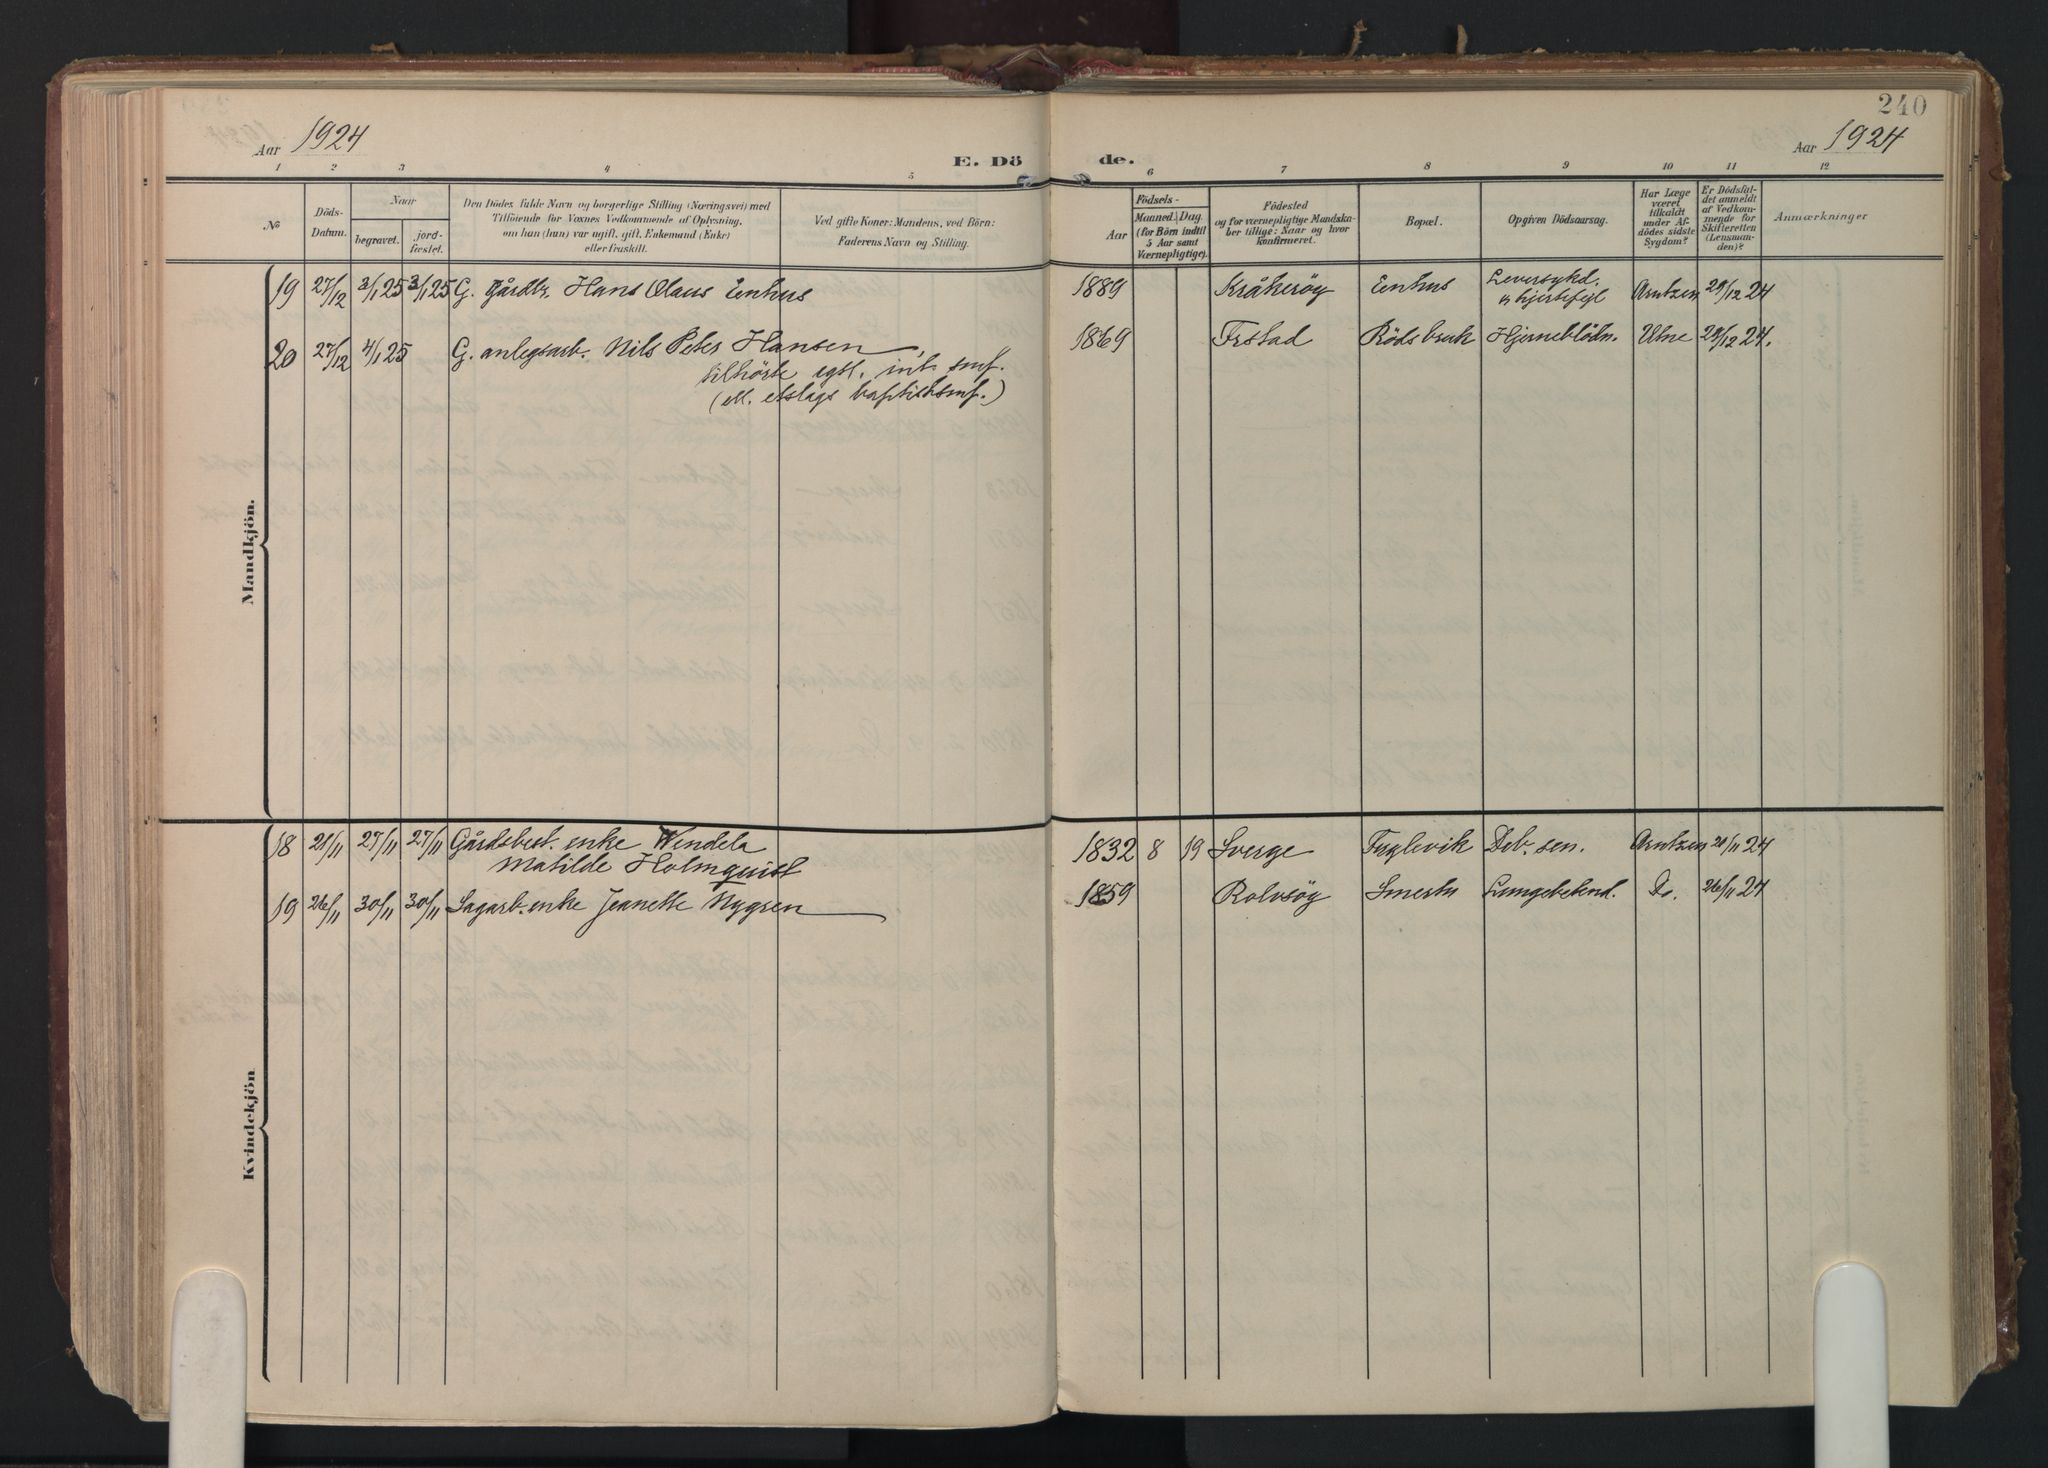 240
Aar 1924
E. Dö de.
Aar 1924
1 2 3 4 5 6 7 8 9 10 11 12
No
Döds-Datum.
Naar
begravet.
jord-fæstet.
Den Dödes fulde Navn og borgerlige Stilling (Næringsvei) med
Tilföiende for Voxnes Vedkommende af Oplysning,
om han (hun) var ugift, gift, Enkemand (Enke)
eller fraskilt.
Ved gifte Koner: Mandens, ved Börn:
Faderens Navn og Stilling.
Födsels-
Aar
Maaned.
Dag.
(for Börn indtil
5 Aar samt
Værnepligtige).
Födested
og for værnepligtige Mandska-
ber tillige: Naar og hvor
konfirmeret.
Bopæl.
Opgiven Dödsaarsag.
Har Læge
været
tilkaldt
under Af-
dödes sidste
Sygdom?
Er Dödsfal-
det anmeldt
af Vedkom-
mende for
Skifteretten
(Lensman-
den)?
Anmærkninger
Mandkjön.
19 27/12 3/1 25 3/1 25 G. gårdbr. Hans Olaus Enhus 1889 Kråkeröy Enhus Leversykd. hjertefejl Arntzen 29/12 24
20 27/12 4/1 25 G. anlegsarb. Nils Peter Hansen, 1869 Frstad Rödsbruk Hjerneblödn. Utne 29/12 24.
tilhörte int. smf.
(ell. etslags baptistsmf.)
Kvindekjön
18 21/11 27/11 27/11 Gårdsbest. enke Wendela 1832 8 19 Sverge Fuglevik Deb. sen. Arntzen 21/11 24
Matilde Holmquist
19 26/11 30/11 30/11 Sagarb. enke Jeanette Nygren 1859 Rolvsöy Smertu Lungebetend. Do. 26/11 24